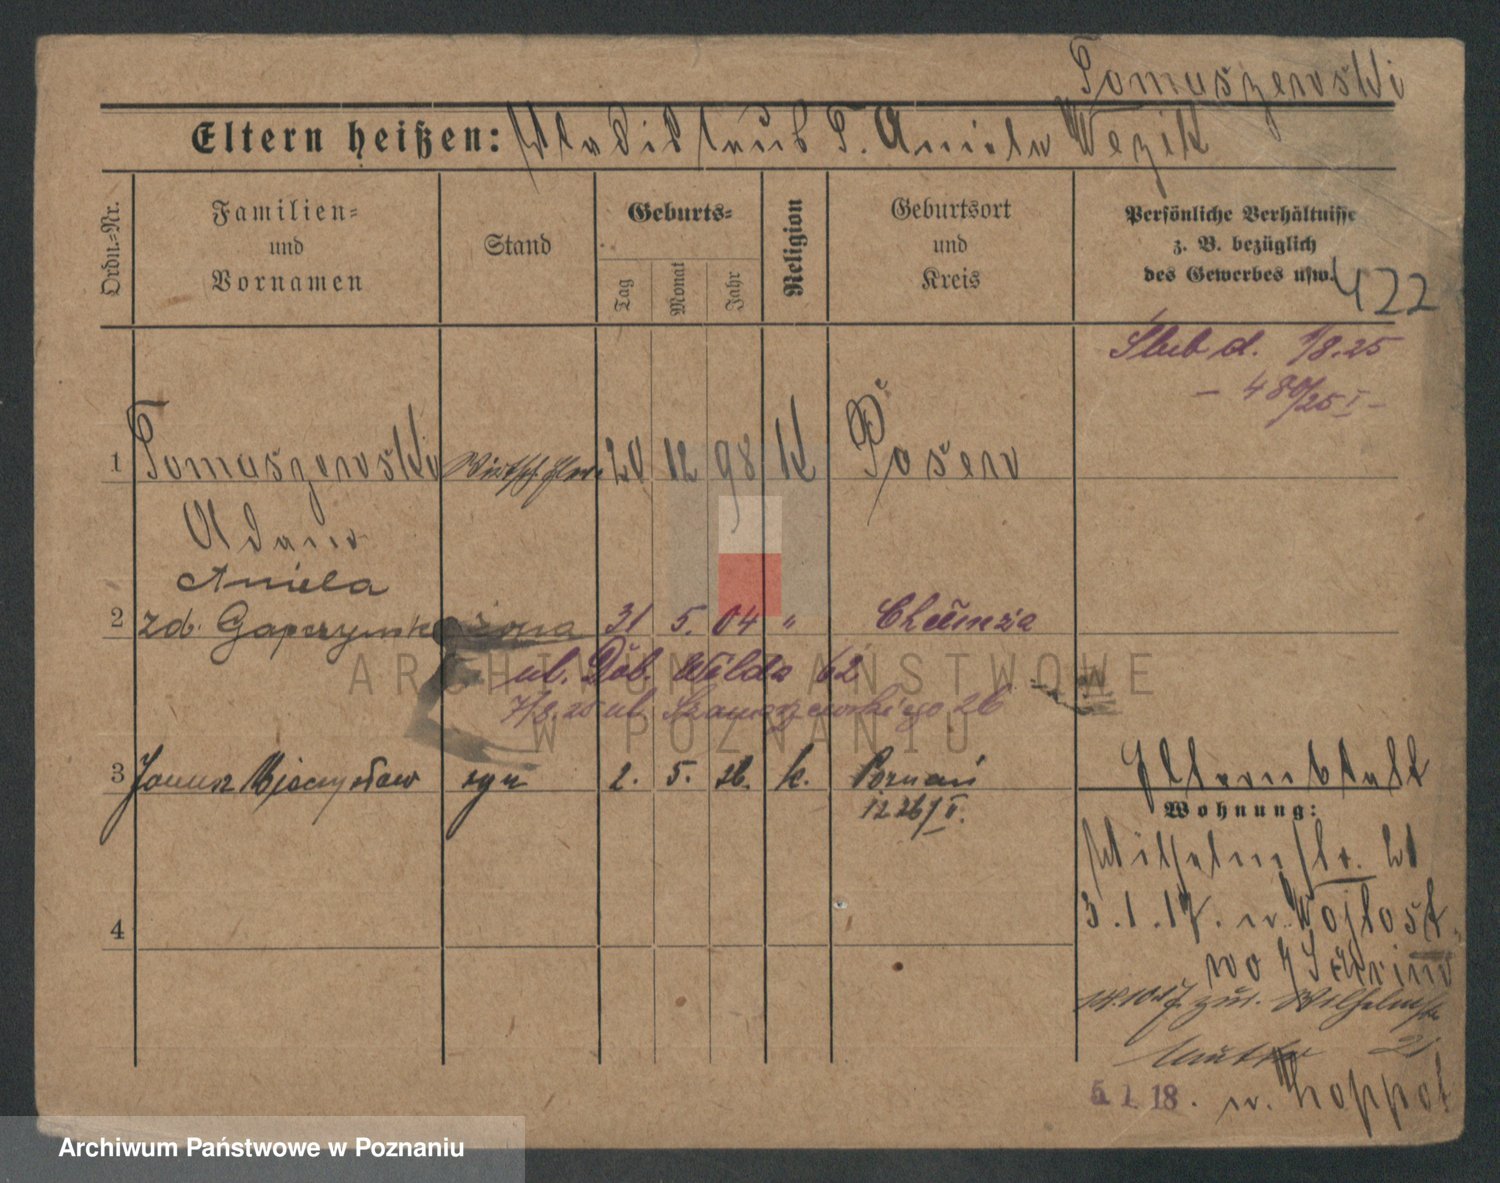 Tomaszewski
Eltern heißen: Wladislaus T. Aniela Wezik
Ordn.-Nr.
Familien-
und
Vornamen
Stand
Geburts-
Tag
Monat
Jahr
Religion
Geburtsort
und
Kreis
Persönliche Verhältnisse
z. B. bezüglich
des Gewerbes usw.
422
Ślub d. 1/8.25
- 480/25 I -
1 Tomaszewski 20 12 98 K Posen
Adam
Aniela
2 zd. Gapczyńska żona 31 5. 04 " Chełmża
ul. Dąb. Wilda 62
7/8.25 ul. Szamarzewskiego 26
3 Janusz Mieczysław syn 2. 5. 26. k. Poznań
12 26/II.
Elternstatt
Wohnung:
Wilhelmstr. 21
3.1.17. n.
4
14.10.17 zur. Wilhelmstr.
Mutter 21
5.1.18. n. Zoppot
ARCHIWUM PAŃSTWOWE
W POZNANIU
Archiwum Państwowe w Poznaniu